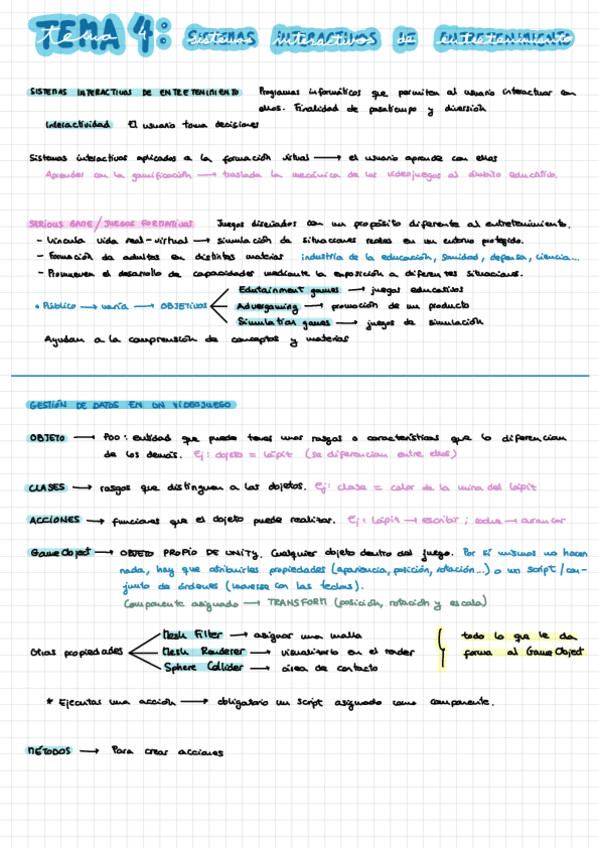 TEMA 4: SISTEMAS INTERACTIVOS DE ENTRETENIMIENTO
SISTEMAS INTERACTIVOS DE ENTRETENIMIENTO Programas informáticos que permiten al usuario interactuar con
ellos. Finalidad de pasatiempo y diversión
Interactividad El usuario toma decisiones
Sistemas interactivos aplicados a la formación virtual → el usuario aprende con ellos
Aprender con la gamificación → traslada la mecánica de los videojuegos al ámbito educativo.
SERIOUS GAME / JUEGOS FORMATIVOS Juegos diseñados con un propósito diferente al entretenimiento.
- Vincula vida real-virtual → simulación de situaciones reales en un entorno protegido.
- Formación de adultos en distintas materias industria de la educación, sanidad, defensa, ciencia...
- Promueven el desarrollo de capacidades mediante la exposición a diferentes situaciones.
• Público → varía → OBJETIVOS
Edutainment games → juegos educativos
Advergaming → promoción de un producto
Simulation games → juegos de simulación
Ayudan a la comprensión de conceptos y materias
GESTIÓN DE DATOS EN UN VIDEOJUEGO
OBJETO → POO: entidad que puede tener unos rasgos o características que lo diferencian
de los demás. Ej: objeto = lápiz (se diferencian entre ellos)
CLASES → rasgos que distinguen a los objetos. Ej: clase = color de la mina del lápiz
ACCIONES → funciones que el objeto puede realizar. Ej: lápiz → escribir; coche → arrancar
GameObject → OBJETO PROPIO DE UNITY. Cualquier objeto dentro del juego. Por sí mismos no hacen
nada, hay que atribuirles propiedades (apariencia, posición, rotación...) o un script / con-
junto de órdenes (moverse con las teclas).
Componente asignado → TRANSFORM (posición, rotación y escala)
Otras propiedades
Mesh Filter → asignar una malla
Mesh Renderer → visualizarlo en el render
Sphere Collider → área de contacto
todo lo que le da
forma al GameObject
* Ejecutas una acción → obligatorio un script asignado como componente.
MÉTODOS → Para crear acciones